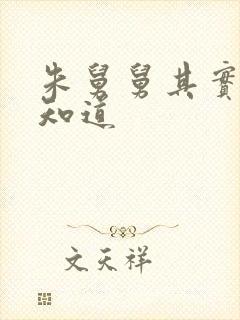 朱舅舅其實
知道
文天祥